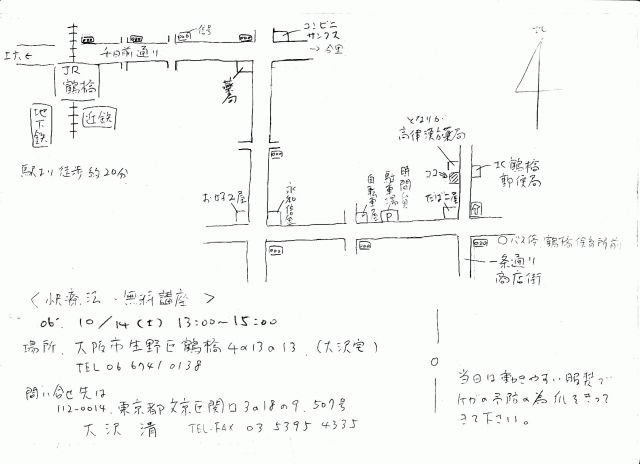 信号
コンビニ
サンクス
→今里
千日前通り
上六←
JR
鶴橋
薬局
地下鉄
近鉄
北
となりが
高津漢方薬局
ココ
北鶴橋
郵便局
駅より徒歩約20分
お好み屋
永和信金
自転車屋
時間貸
駐車場
P
たばこ屋
〒
○バス停 鶴橋保育所前
一条通り
商店街
〈快療法・無料講座〉
06'. 10/14(土) 13:00~15:00
場所. 大阪市生野区鶴橋4の13の13.(大沢宅)
TEL 06 6741 0138
問い合せ先は
112-0014. 東京都文京区関口3の18の9. 507号
大沢 清 TEL-FAX 03 5395 4335
当日は動きやすい服装で
ケガの予防の為爪をきって
きて下さい。